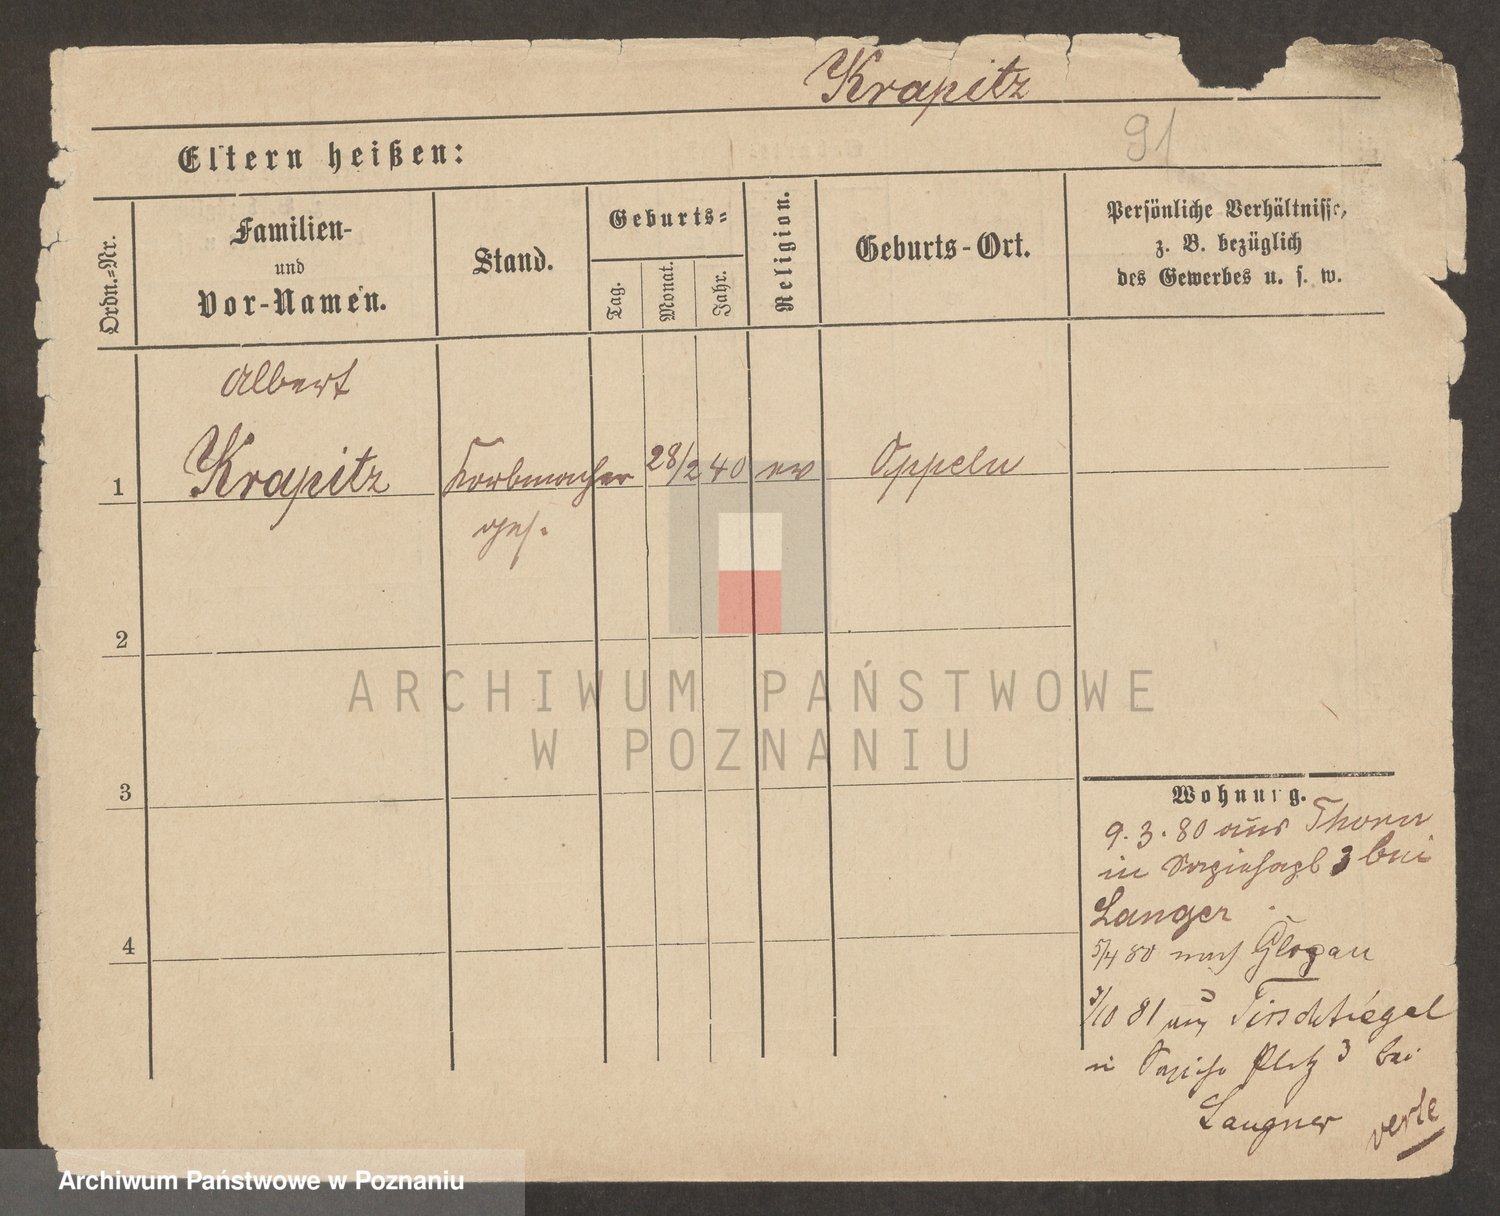 Krapitz
91
Eltern heißen:
Ordn.=Nr.
Familien-
und
Vor-Namen.
Stand.
Geburts=
Tag.
Monat.
Jahr.
Religion.
Geburts-Ort.
Persönliche Verhältnisse,
z. B. bezüglich
des Gewerbes u. s. w.
Albert
1 Krapitz Korbmacher 28/2 40 ev Oppeln
ges.
2
3
4
Wohnung.
9. 3. 80 aus Thorn
in Sapiehapl 3 bei
Langer
5/4 80 nach Glogau
3/10 81 aus Tirschtiegel
in Sapieha Platz 3 bei
Langner verte
ARCHIWUM PAŃSTWOWE
W POZNANIU
Archiwum Państwowe w Poznaniu